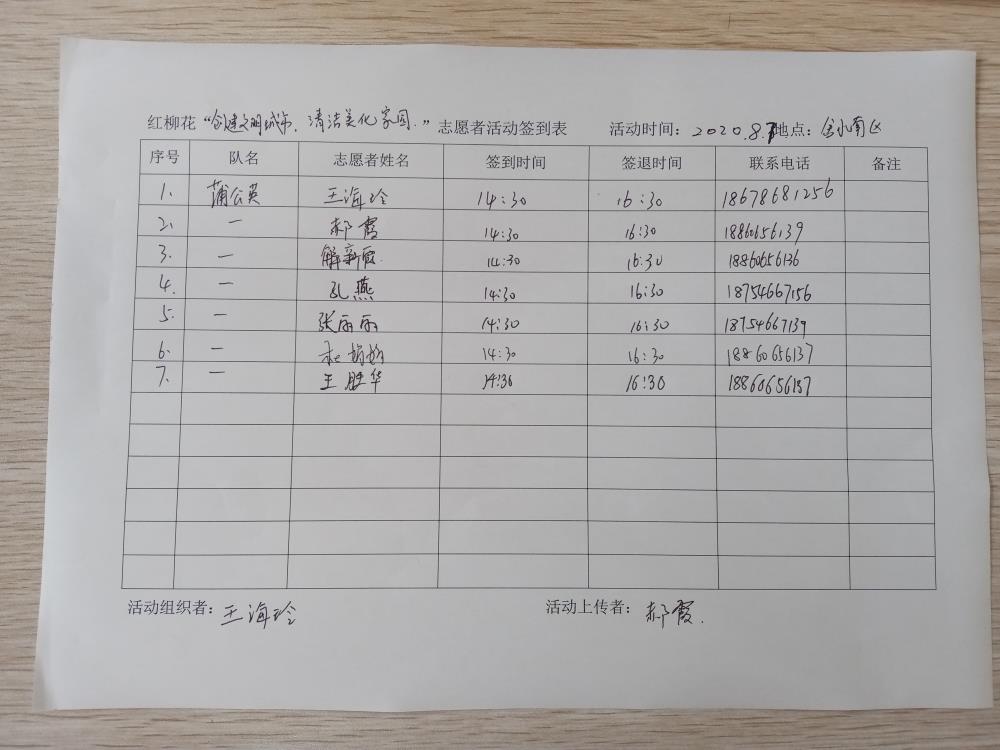 红柳花“创建文明城市,清洁美化家园.”志愿者活动签到表 活动时间:2020.8.7地点:金水南区
序号 队名 志愿者姓名 签到时间 签退时间 联系电话 备注
1. 蒲公英 王海玲 14:30 16:30 18678681256
2. 一 郝霞 14:30 16:30 18860156139
3. 一 解新霞 14:30 16:30 18860656136
4. 一 孔燕 14:30 16:30 18754667156
5. 一 张丽丽 14:30 16:30 18754667139
6. 一 14:30 16:30 18860656137
7. 一 王胜华 14:30 16:30 18860656137
活动组织者:王海玲 活动上传者:郝霞.